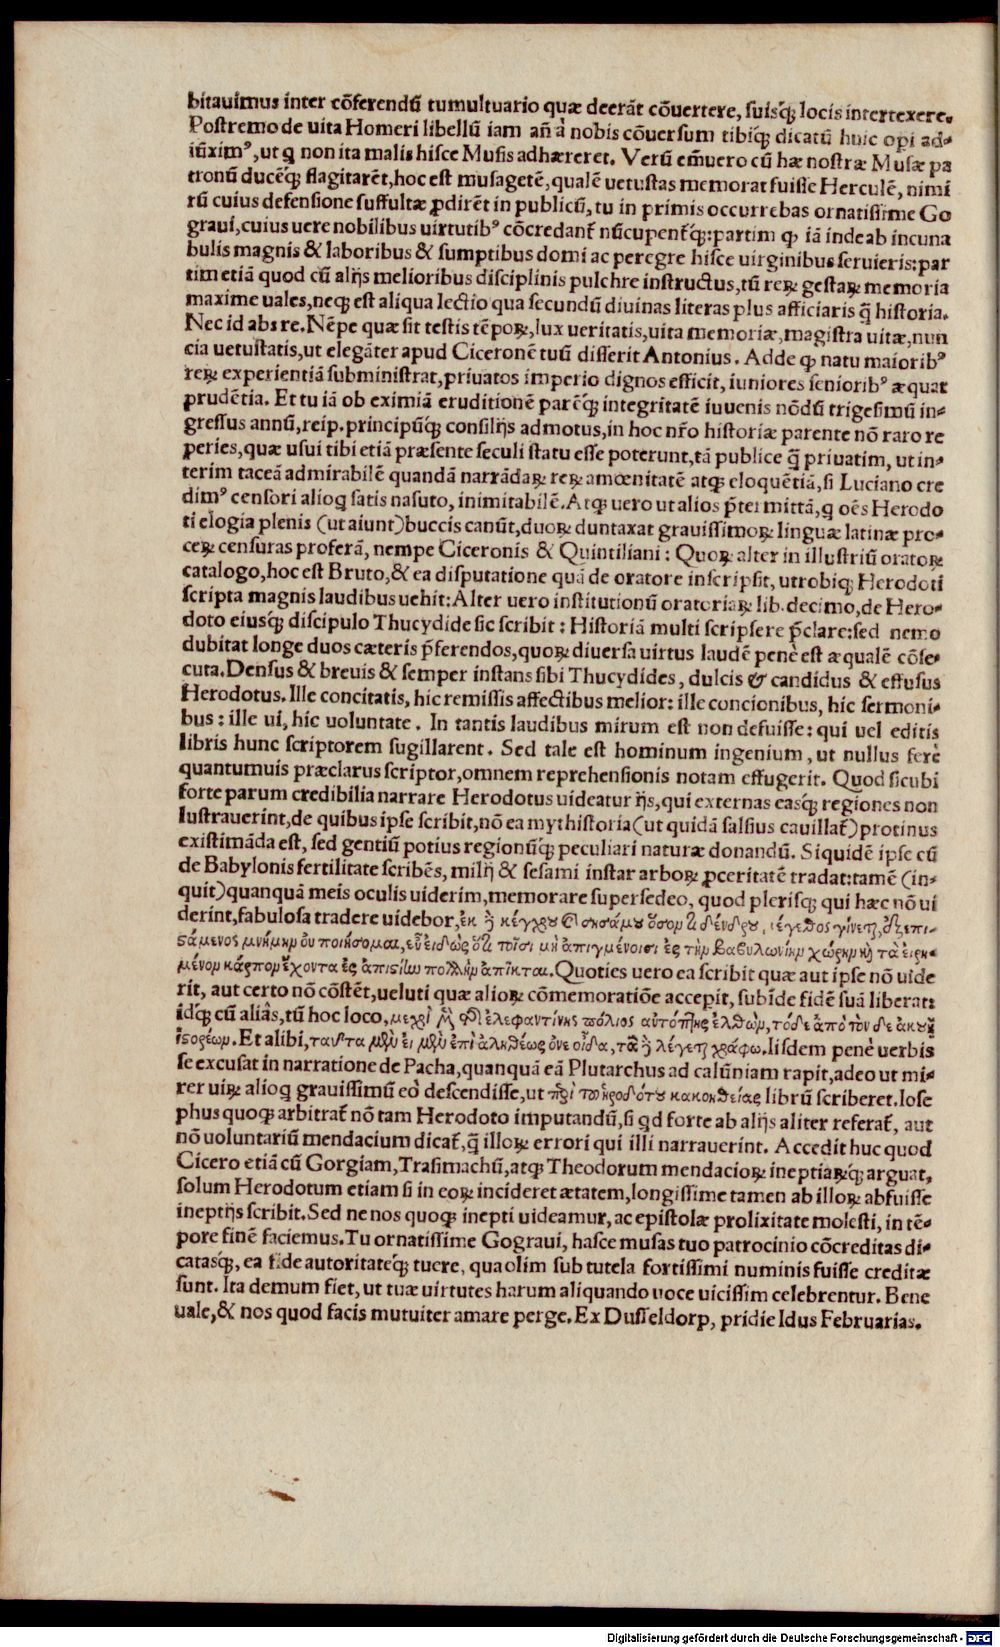 bitauimus inter cõferendũ tumultuario quæ deerãt cõuertere, suisq́ꝫ locis intertexere.
Postremo de uita Homeri libellũ iam añ à nobis cõuersum tibiq́ꝫ dicatũ huic opi ad-
iũximꝰ, ut ꝗ non ita malis hisce Musis adhæreret. Verũ em̃uero cũ hæ nostræ Musæ pa
tronũ ducẽq́ꝫ flagitarẽt, hoc est musagetẽ, qualẽ uetustas memorat fuisse Herculẽ, nimi
rũ cuius defensione suffultæ ꝓdirẽt in publicũ, tu in primis occurrebas ornatissime Go
graui, cuius uere nobilibus uirtutibꝰ cõcredant᷑ nũcupent᷑q́ꝫ: partim ꝙ iã inde ab incuna
bulis magnis & laboribus & sumptibus domi ac peregre hisce uirginibus seruieris: par
tim etiã quod cũ alijs melioribus disciplinis pulchre instructus, tũ reꝝ gestaꝝ memoria
maxime uales, neqꝫ est aliqua lectio qua secundũ diuinas literas plus afficiaris q̃ historia.
Nec id abs re. Nẽpe quæ sit testis tẽpoꝝ, lux ueritatis, uita memoriæ, magistra uitæ, nun
cia uetustatis, ut elegãter apud Ciceronẽ tuũ disserit Antonius. Adde ꝙ natu maioribꝰ
reꝝ experientiã subministrat, priuatos imperio dignos efficit, iuniores senioribꝰ æquat
prudẽtia. Et tu iã ob eximiã eruditionẽ parẽq́ꝫ integritatẽ iuuenis nõdũ trigesimũ in-
gressus annũ, reip. principũq́ꝫ consilijs admotus, in hoc nr̃o historiæ parente nõ raro re
peries, quæ usui tibi etiã præsente seculi statu esse poterunt, tã publice q̃ priuatim, ut in-
terim taceã admirabilẽ quandã narrãdaꝝ reꝝ amœnitatẽ atqꝫ eloquẽtiã, si Luciano cre
dimꝰ censori alioꝗ satis nasuto, inimitabilẽ. Atqꝫ uero ut alios p̃termittã, ꝗ oẽs Herodo
ti elogia plenis (ut aiunt) buccis canũt, duoꝝ duntaxat grauissimoꝝ linguæ latinæ pro-
ceꝝ censuras proferã, nempe Ciceronis & Quintiliani: Quoꝝ alter in illustriũ oratoꝝ
catalogo, hoc est Bruto, & ea disputatione quã de oratore inscripsit, utrobiqꝫ Herodoti
scripta magnis laudibus uehit: Alter uero institutionũ oratoriaꝝ lib. decimo, de Hero-
doto eiusq́ꝫ discipulo Thucydide sic scribit: Historiã multi scripsere p̃clare: sed nemo
dubitat longe duos cæteris p̃ferendos, quoꝝ diuersa uirtus laudẽ penè est æqualẽ cõse-
cuta. Densus & breuis & semper instans sibi Thucydides, dulcis & candidus & effusus
Herodotus. Ille concitatis, hic remissis affectibus melior: ille concionibus, hic sermoni-
bus: ille ui, hic uoluntate. In tantis laudibus mirum est non defuisse: qui uel editis
libris hunc scriptorem sugillarent. Sed tale est hominum ingenium, ut nullus ferè
quantumuis præclarus scriptor, omnem reprehensionis notam effugerit. Quod sicubi
forte parum credibilia narrare Herodotus uideatur ijs, qui externas easq́ꝫ regiones non
lustrauerint, de quibus ipse scribit, nõ ea mythistoria (ut quidã salsius cauillat᷑) protinus
existimãda est, sed gentiũ potius regionũq́ꝫ peculiari naturæ donandũ. Siquidẽ ipse cũ
de Babylonis fertilitate scribẽs, milij & sesami instar arboꝝ ꝓceritatẽ tradat: tamẽ (in-
quit) quanquã meis oculis uiderim, memorare supersedeo, quod plerisqꝫ qui hæc nõ ui
derint, fabulosa tradere uidebor, ἐκ δὲ κέγχρου καὶ σησάμου ὅσον τι δένδρον μέγεθος γίνεται, ἐξεπι-
ςάμενος μνήμην οὐ ποιήσομαι, εὖ εἰδὼς ὅτι τοῖσι μὴ ἀπιγμένοισι ἐς τὴν βαβυλωνίην χώρην καὶ τὰ εἰρη-
μένον κάρπον ἔχοντα ἐς ἀπιςίην πολλὴν ἀπῖκται. Quoties uero ea scribit quæ aut ipse nõ uide
rit, aut certo nõ cõstẽt, ueluti quæ alioꝝ cõmemoratiõe accepit, subĩde fidẽ suã liberat:
idq́ꝫ cũ aliâs, tũ hoc loco, μεχρὶ μὲν ἐλεφαντίνης πόλιος αὐτόπτης ἐλθὼν, τόδε ἀπὸ τὸν δε ἀκοῇ
ἱςορέων. Et alibi, ταῦτα μὲν εἰ μὲν ἐπὶ ἀληθέως ὀνε οἶδα, τὰ δὲ λέγεται γράφω. Iisdem penè uerbis
se excusat in narratione de Pacha, quanquã eã Plutarchus ad calũniam rapit, adeo ut mi-
rer uiꝝ alioꝗ grauissimũ eò descendisse, ut περὶ τοῦ ἡροδότου κακοηθείας librũ scriberet. Iose
phus quoqꝫ arbitrat᷑ nõ tam Herodoto imputandũ, si ꝗd forte ab alijs aliter referat᷑, aut
nõ uoluntariũ mendacium dicat᷑, q̃ illoꝝ errori qui illi narrauerint. Accedit huc quod
Cicero etiã cũ Gorgiam, Trasimachũ, atqꝫ Theodorum mendacioꝝ ineptiaꝝq́ꝫ arguat,
solum Herodotum etiam si in eoꝝ incideret ætatem, longissime tamen ab illoꝝ abfuisse
ineptijs scribit. Sed ne nos quoqꝫ inepti uideamur, ac epistolæ prolixitate molesti, in tẽ-
pore finẽ faciemus. Tu ornatissime Gograui, hasce musas tuo patrocinio cõcreditas di-
catasq́ꝫ, ea fide autoritateq́ꝫ tuere, qua olim sub tutela fortissimi numinis fuisse creditæ
sunt. Ita demum fiet, ut tuæ uirtutes harum aliquando uoce uicissim celebrentur. Bene
uale, & nos quod facis mutuiter amare perge. Ex Dusseldorp, pridie Idus Februarias.
Digitalisierung gefördert durch die Deutsche Forschungsgemeinschaft - DFG